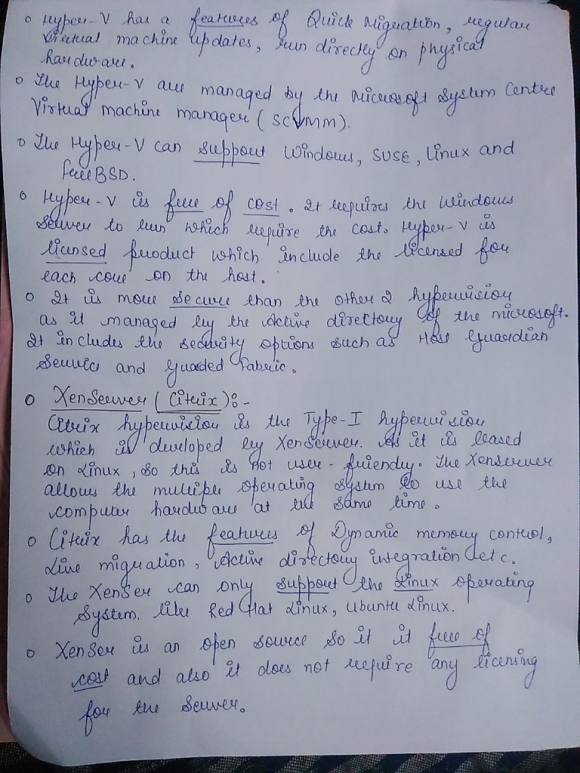 o Hyper-V has a features of Quick Migration, regular
virtual machine updates, run directly on physical
hardware.
o The Hyper-V are managed by the Microsoft System Centre
Virtual machine manager (SCVMM).
o The Hyper-V can support Windows, SUSE, Linux and
freeBSD.
o Hyper-V is free of cost. It requires the Windows
Server to run which require the cost. Hyper-V is
licensed product which include the licensed for
each core on the host.
o It is more secure than the other 2 hypervision
as it managed by the Active directory of the microsoft.
It includes the security options such as Host Guardian
Service and Guarded Fabric.
o XenServer (Citrix):-
Citrix hypervision is the Type-I hypervision
which is developed by XenServer. As it is based
on Linux, so this is not user-friendly. The Xenserver
allows the multiple operating system to use the
computer hardware at the same time.
o Citrix has the features of Dynamic memory control,
Live migration, Active directory integration etc.
o The XenSer can only support the Linux operating
System. like Red Hat Linux, Ubuntu Linux.
o XenSer is an open source so it it free of
cost and also it does not require any licensing
for the Server.